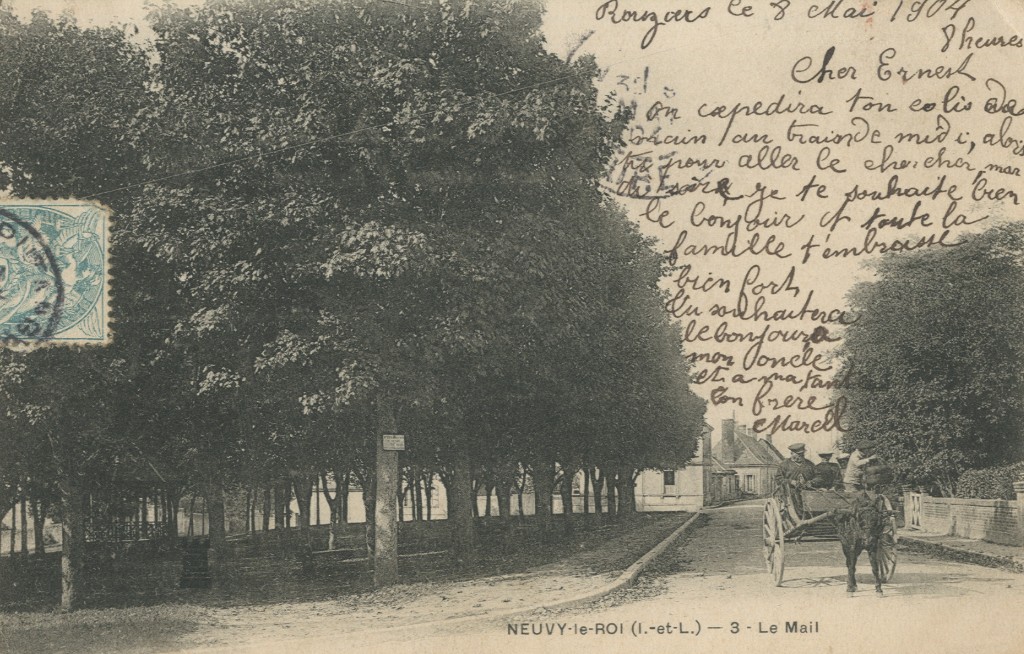 Rouziers le 8 Mai 1904
8 heures
Cher Ernest
on expédira ton colis de
main au train de midi, alors
pour aller le chercher,
je te souhaite bien
le bonjour et toute la
famille t'embrasse
bien fort
tu souhaitera
le bonjour a
mon oncle
et a ma tante
ton frere
Marcel
NEUVY-le-ROI (I.-et-L.) — 3 - Le Mail